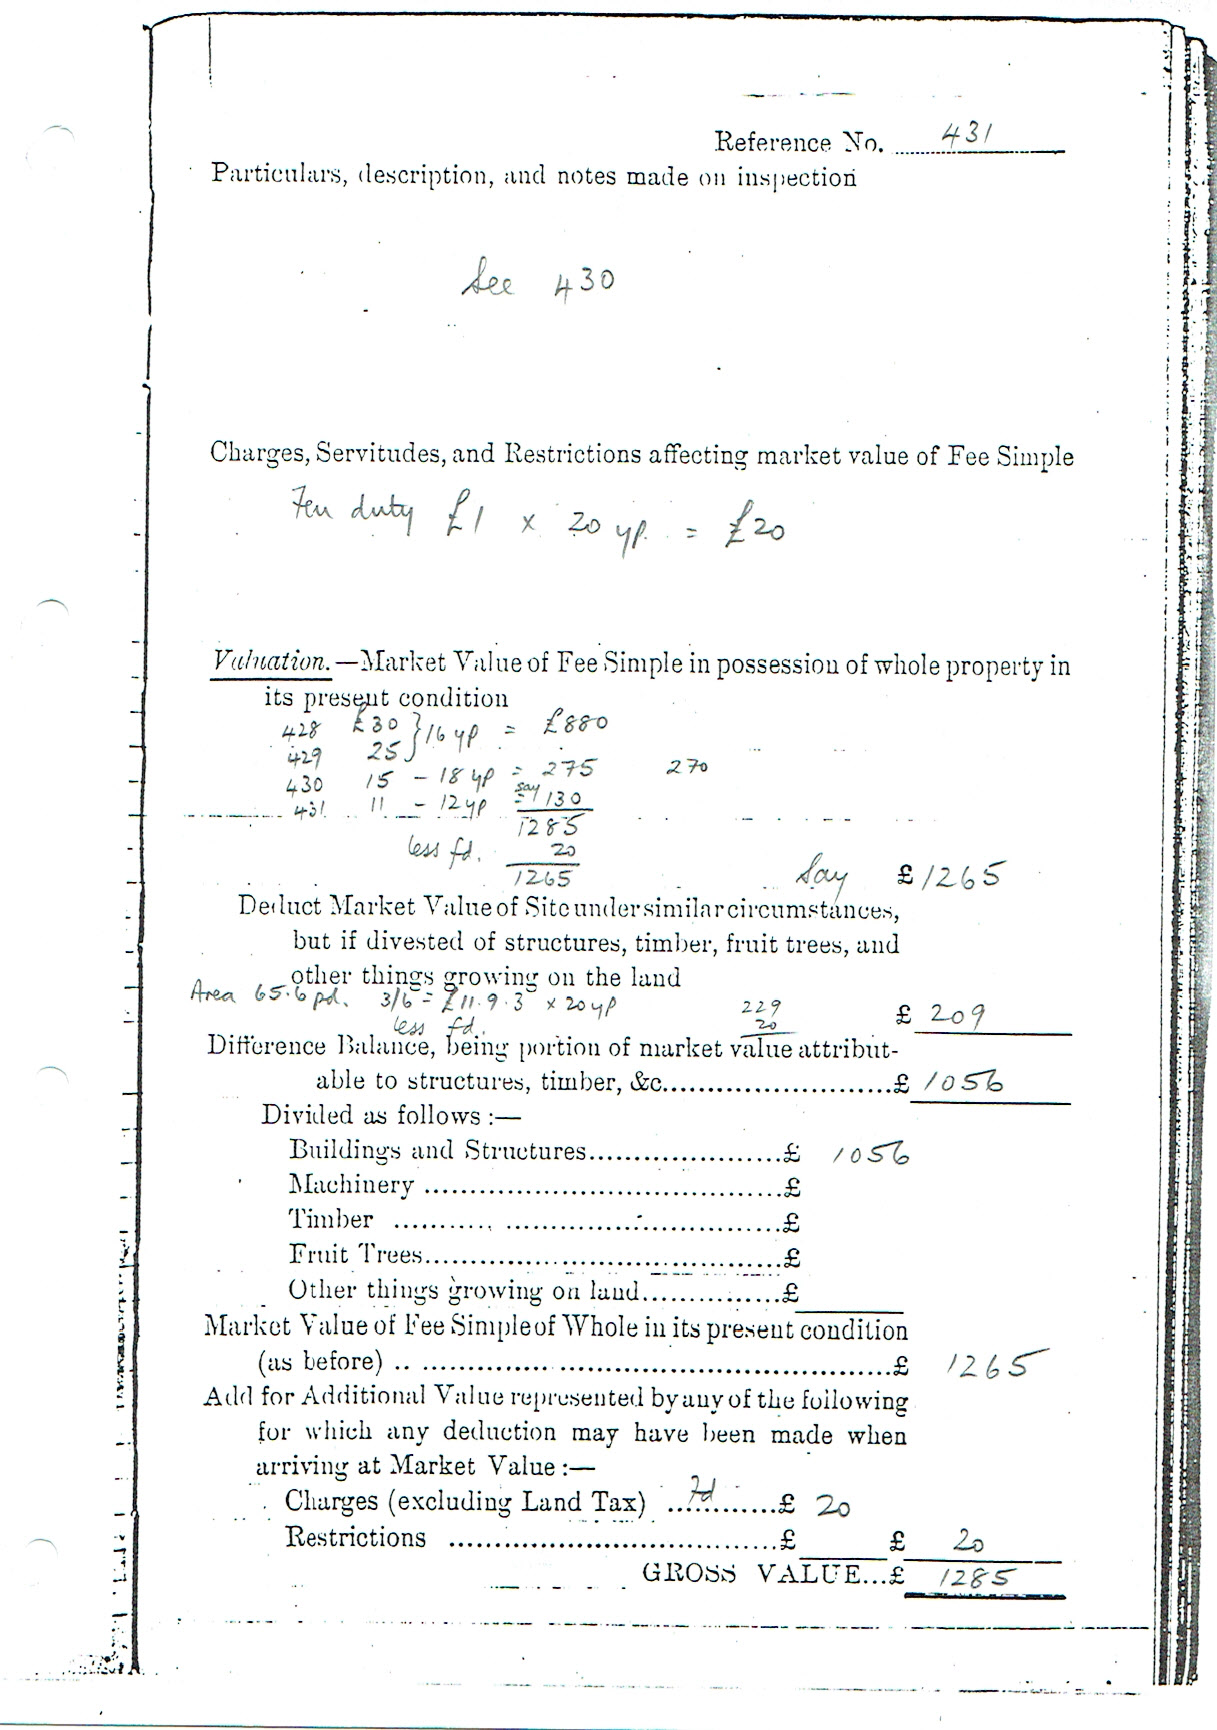 Reference No. 431
Particulars, description, and notes made on inspection
See 430
Charges, Servitudes, and Restrictions affecting market value of Fee Simple
Feu duty £1 x 20 yp. = £20
Valuation.—Market Value of Fee Simple in possession of whole property in
its present condition
428 £30 } 16 yp = £880
429 25
430 15 - 18 yp = 275 270
431 11 - 12 yp = say 130
1285
less fd. 20
1265 Say £1265
Deduct Market Value of Site under similar circumstances,
but if divested of structures, timber, fruit trees, and
other things growing on the land
Area 65.6 pd. 3/6 = £11.9.3 x 20 yp 229 £ 209
less fd. 20
Difference Balance, being portion of market value attribut-
able to structures, timber, &c.........................£ 1056
Divided as follows :—
Buildings and Structures.....................£ 1056
Machinery .......................................£
Timber ..........................................£
Fruit Trees.......................................£
Other things growing on land...............£
Market Value of Fee Simple of Whole in its present condition
(as before) .. ...................................................£ 1265
Add for Additional Value represented by any of the following
for which any deduction may have been made when
arriving at Market Value :—
Charges (excluding Land Tax) ..fd........£ 20
Restrictions ....................................£ £ 20
GROSS VALUE...£ 1285